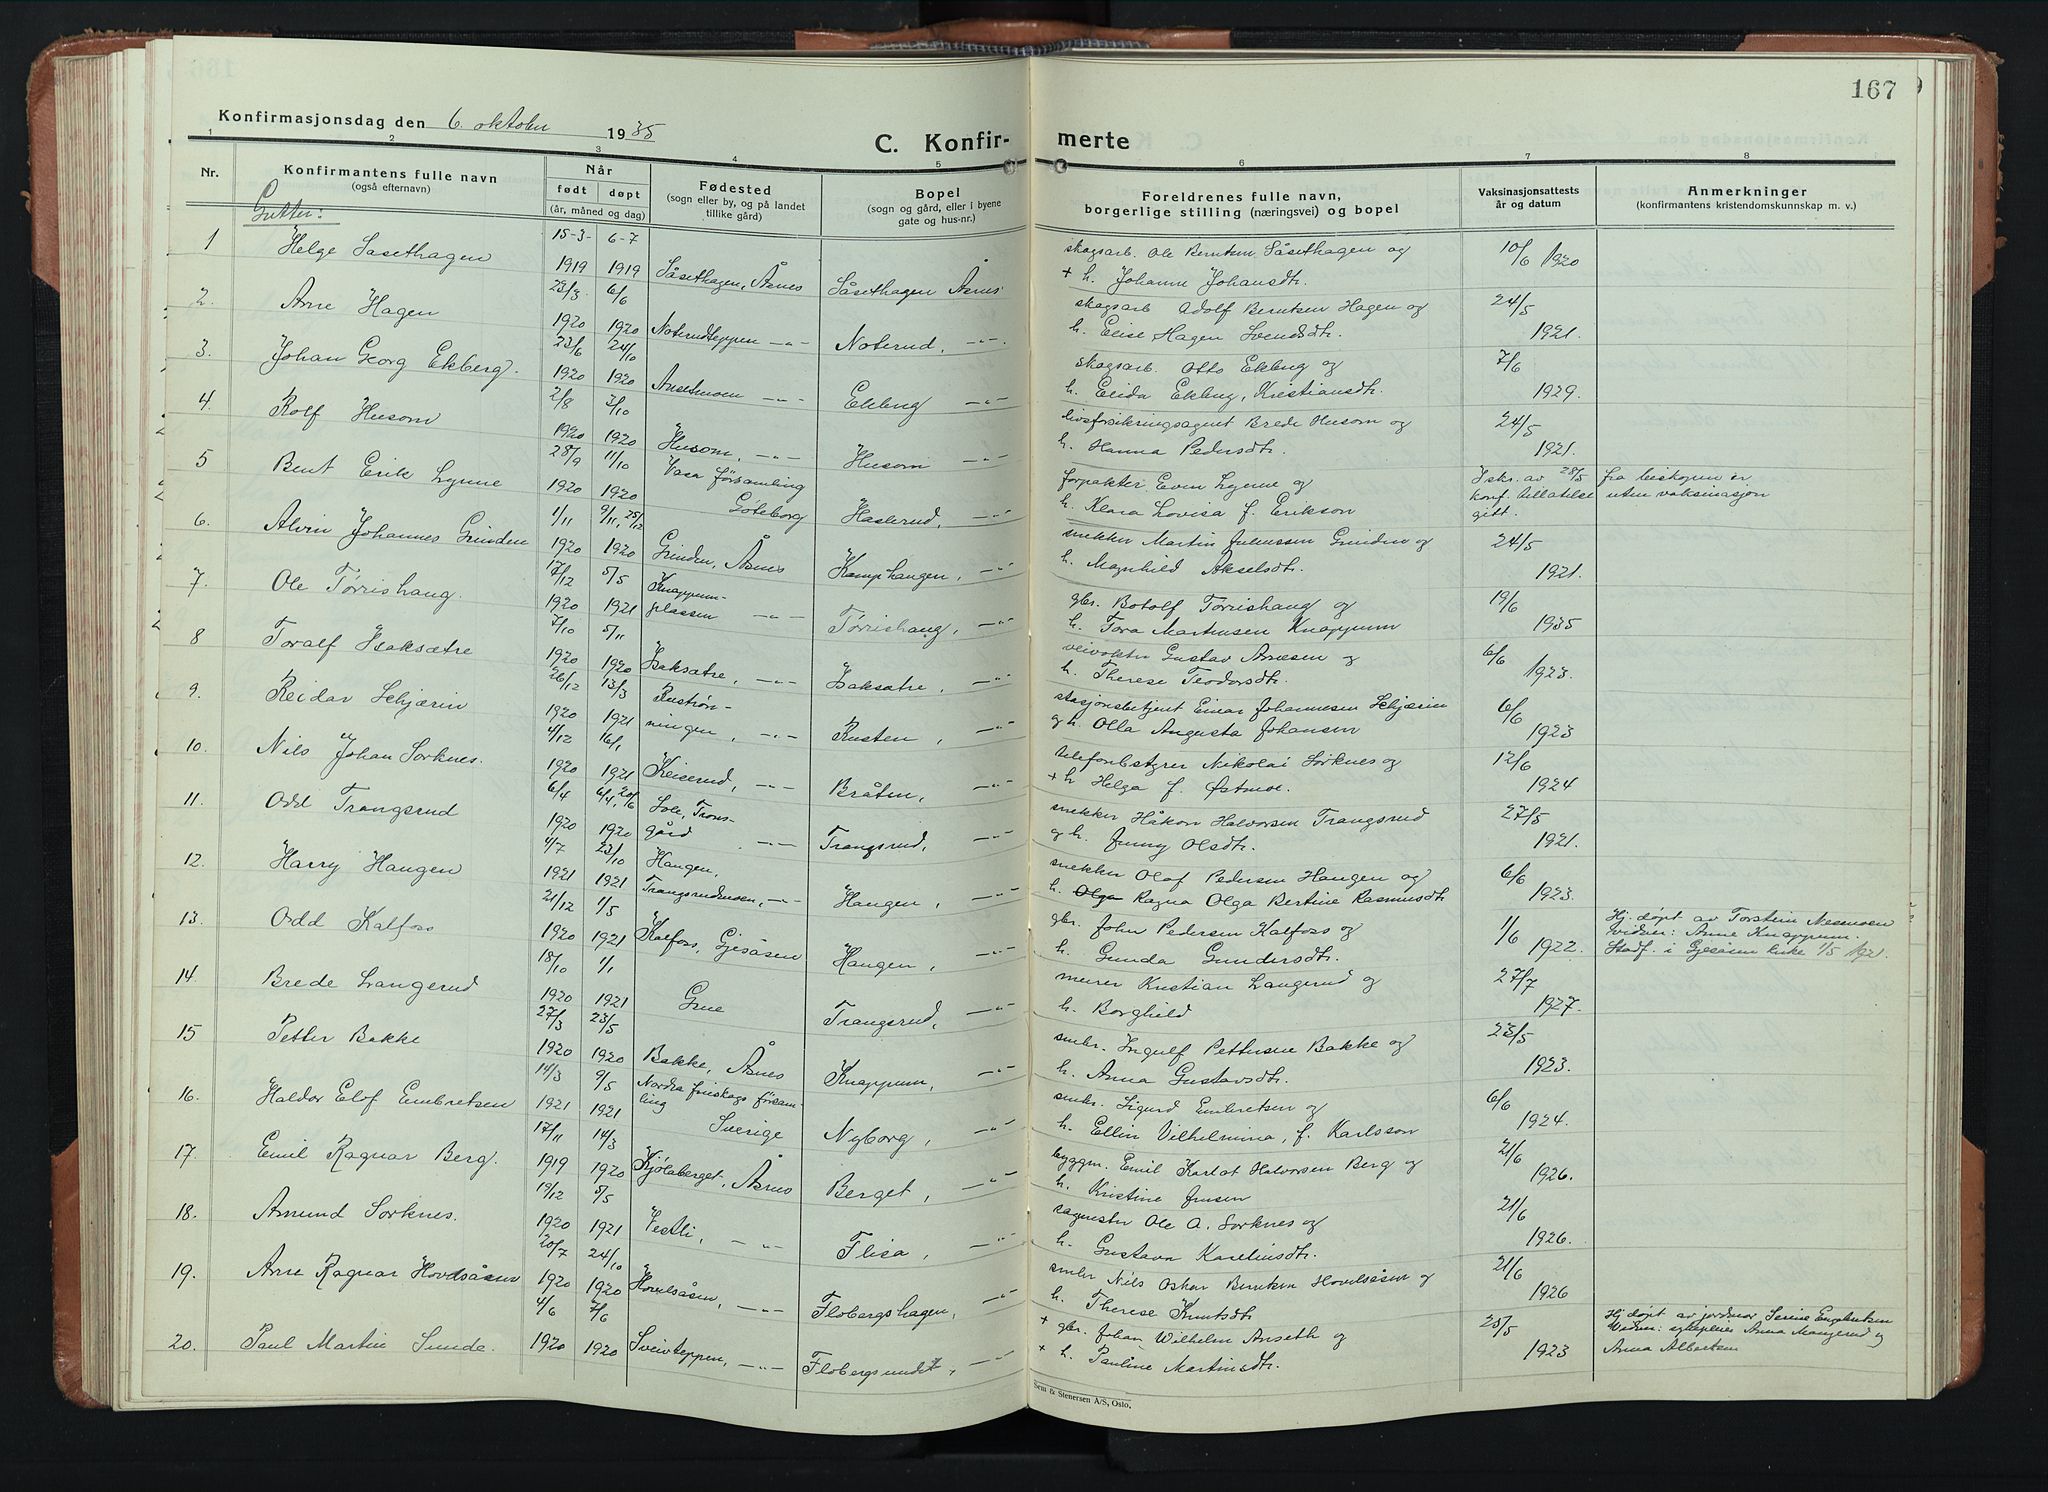 167
Konfirmasjonsdag den 6. oktober 1935
C. Konfir- merte
1 2 3 4 5 6 7 8
Nr. Konfirmantens fulle navn (også efternavn) Når født døpt (år, måned og dag) Fødested (sogn eller by, og på landet tillike gård) Bopel (sogn og gård, eller i byene gate og hus-nr.) Foreldrenes fulle navn, borgerlige stilling (næringsvei) og bopel Vaksinasjonsattests år og datum Anmerkninger (konfirmantens kristendomskunnskap m. v.)
Gutter:
1 Helge Såsethagen 15-3- 1919 6-7 1919 Såsethagen, Åsnes Såsethagen Åsnes skogsarb. Ole Berntsen Såsethagen og + h. Johanne Johansdtr. 10/6 1920
2. Arne Hagen 23/3 1920 6/6 1920 Noterudteppen —"— Noterud, —"— skogsarb Adolf Berntsen Hagen og h. Elise Hagen Svendsdtr. 24/5 1921.
3. Johan Georg Ekberg. 23/6 1920 24/10 1920 Arsetmoen —"— Ekberg —"— skogsarb. Otto Ekberg og h. Erida Ekberg, Kristiansdtr. 7/6 1929.
4 Rolf Husom 2/8 1920 7/10 1920 Husom, —"— Husom —"— livsforsikringsagent Brede Husom og h. Hanna Pedersdtr. 24/5 1921.
5 Bent Erik Lynne 28/9 1920 11/10 1920 Vasa församling Göteborg Haslerud, —"— forpakter Even Lynne og h. Klara Lovisa f. Erikson I skr. av 28/5 fra biskopen er konf. tillatelse uten vaksinasjon gitt.
6. Alvin Johannes Grinden 1/11 1920 9/11, 25/12 1920 Grinden, Åsnes Kamphaugen, —"— snekker Martin Juliussen Grinden og h. Magnhild Akselsdtr. 24/5 1921.
7. Ole Tørrishaug. 17/12 1920 5/5 1921 Knappumplassen —"— Tørrishaug, —"— gbr. Botolf Tørrishaug og h. Tora Martinsen Knappum 19/6 1935
8 Toralf Isaksætre 7/10 1920 5/11 1920 Isaksætre, —"— Isaksætre, —"— veivokter Gustav Arnesen og h. Therese Teodorsdtr. 6/6 1923.
9. Reidar Schjærin 26/12 1920 13/3 1921 Rustrønningen, —"— Rusten, —"— stasjonsbetjent Einar Johannesen Schjærin og h. Olla Augusta Johansen 6/6 1923
10. Nils Johan Sorknes. 4/12 1920 16/1 1921 Keiserud, —"— Bråten, —"— telefonbestyrer Nikolai Sorknes og + h Helga f. Østmoe. 12/6 1924
11. Odd Trangsrud 6/4 1920 6/4, 20/6 1920 Sole, Tronsgård —"— Trangsrud, —"— snekker Håkon Halvorsen Trangsrud og h. Jenny Olsdtr. 27/5 1921.
12. Harry Haugen 4/7 1921 23/10 1921 Haugen, Trangsrudmoen, —"— Haugen, —"— snekker Olaf Pedersen Haugen og h. Olga Ragna Olga Bertine Rasmusdtr 6/6 1923.
13. Odd Kalfoss 21/12 1920 1/5 1921 Kalfoss, Gjesåsen Haugen, —"— gbr. John Pedersen Kalfoss og h. Gunda Gundersdtr. 1/6 1922. Hj. døpt av Torstein Nesmoen Vidner: Anne Knappum. Stadf. i Gjesåsen kirke 1/5 1921.
14. Brede Langerud 18/10 1920 1/1 1921 Grue Trangsrud, —"— murer Kristian Langerud og h. Borghild 27/7 1927.
15 Petter Bakke 27/3 1920 23/5 1920 Bakke, Åsnes Knappum, —"— småbr. Ingulf Pettersen Bakke og h. Anna Gustavsdtr. 23/5 1923.
16. Haldor Elof Embretsen 14/3 1921 9/5 1921 Nordra finskogs församling Sverige Nyborg, —"— småbr. Sigurd Embretsen og h. Ellin Vilhelmina, f. Karlsson 6/6 1924.
17. Emil Ragnar Berg. 17/11 1919 14/3 1920 Kjølaberget, Åsnes Berget, —"— byggm. Emil Karlot Halvorsen Berg og h. Kristine Jensen 21/6 1926.
18. Amund Sorknes. 19/12 1920 5/5 1921 Vestli, —"— Flisa, —"— sagmester Ole A. Sorknes og h. Gustava Karelinsdtr. 21/6 1926.
19. Arne Ragnar Hovdsåsen 20/7 1920 24/10 1920 Hovelsåsen, —"— Flobergshagen, —"— småbr Nils Oskar Berntsen Hovelsåsen og h. Therese Knutsdtr. 21/6 1926
20. Paul Martin Sunde. 4/6 1920 7/6 1920 Sveivteppen, —"— Flobergsundet, —"— + gbr. Johan Wilhelm Anseth og + h. Pauline Martinsdtr. 25/5 1923 Hj.døpt av jordmor Serine Engebretsen Vidner: sykepleier Anna Mangerud og Anna Albertsen
Sem & Stenersen A/S, Oslo.